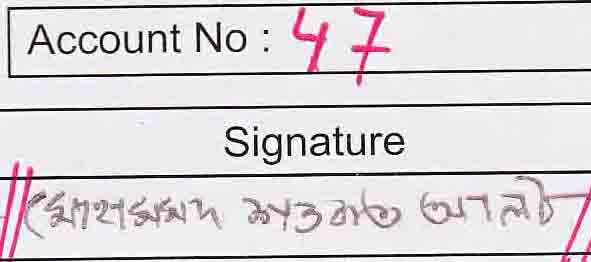 Account No : 47
Signature
মোহাম্মদ আলী